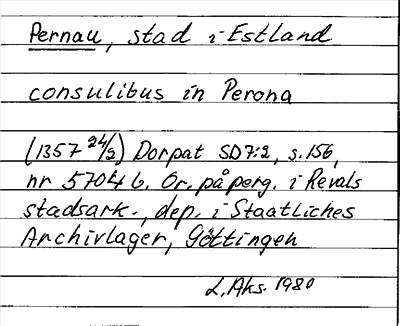 Pernau, stad i Estland
consulibus in Perona
(1357 24/2) Dorpat SD7:2, s.156,
nr 5704 b. Or. på perg. i Revals
stadsark., dep. i Staatliches
Archivlager, Göttingen
L. Aks. 1980